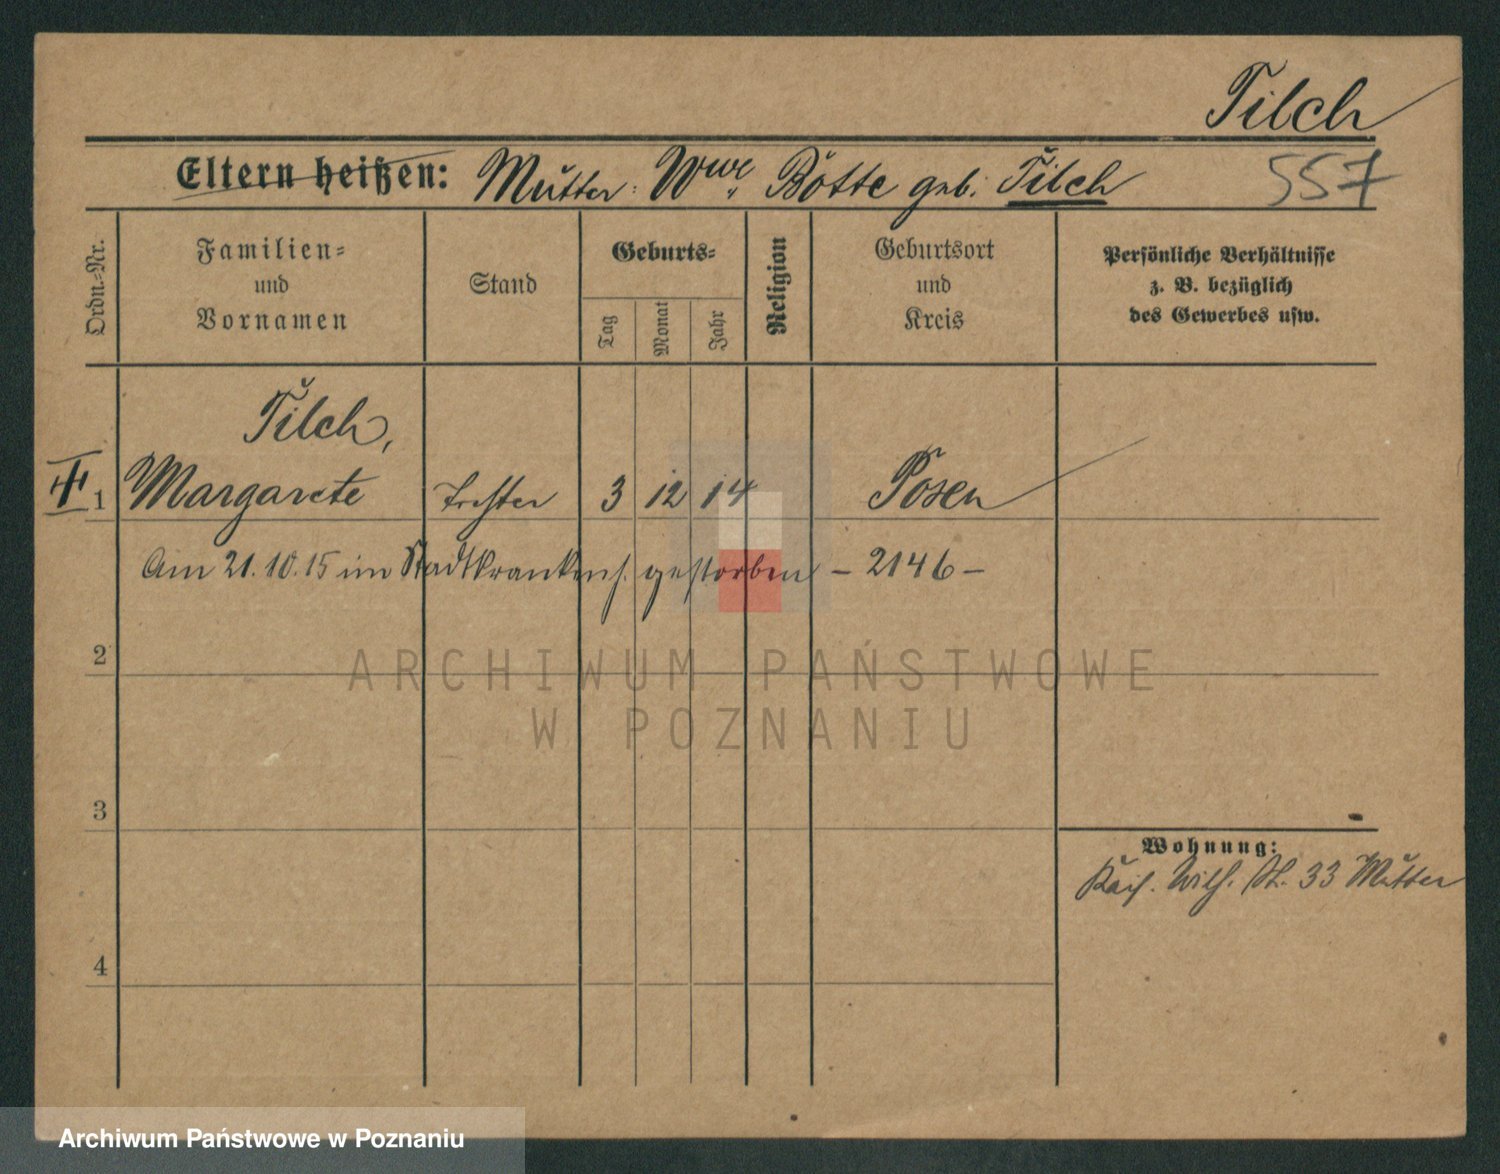 Tilch
Eltern heißen: Mutter: Wwe. Botte geb. Tilch 557
Ordn.-Nr.
Familien-
und
Vornamen
Stand
Geburts-
Tag
Monat
Jahr
Religion
Geburtsort
und
Kreis
Persönliche Verhältnisse
z. B. bezüglich
des Gewerbes usw.
Tilch,
1 Margarete Tochter 3 12 14 Posen
Am 21.10.15 im Stadtkrankenh. gestorben – 2146 –
2
ARCHIWUM PAŃSTWOWE
W POZNANIU
3
Wohnung:
Kais. Wilh. Str. 33 Mutter
4
Archiwum Państwowe w Poznaniu